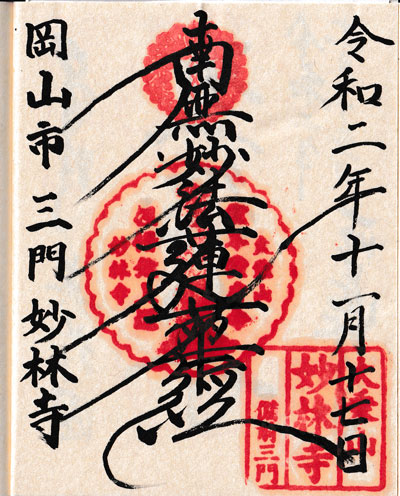 令和二年十一月十七日
南無妙法蓮華経
岡山市 三門 妙林寺
妙林寺
備前三門